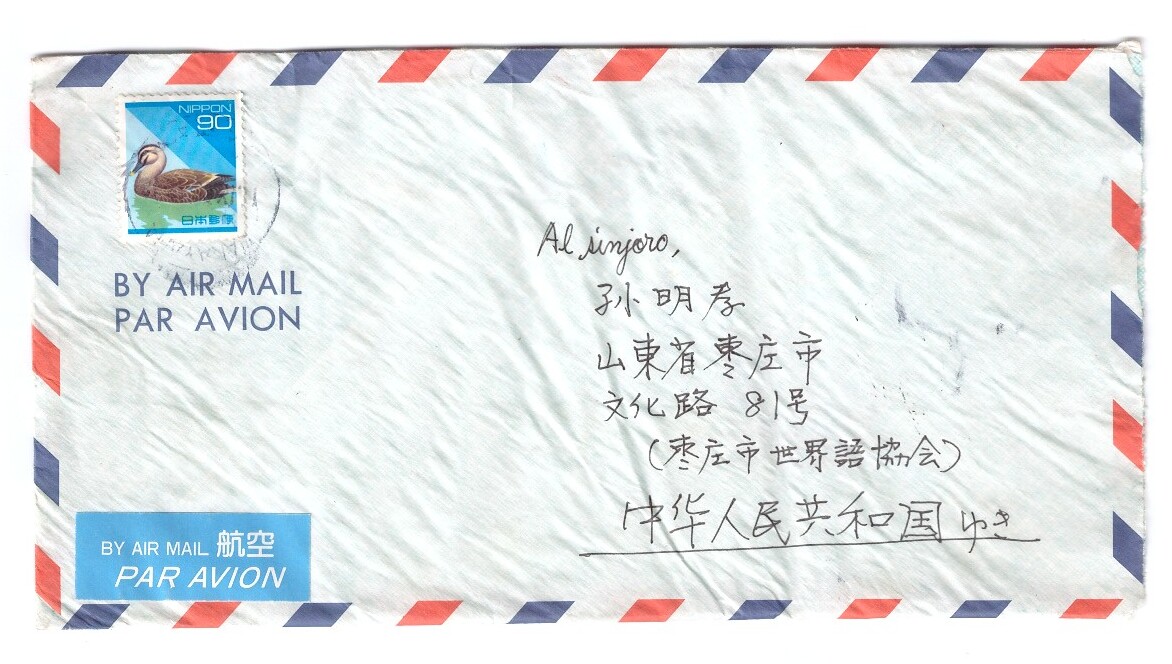 NIPPON
90
日本郵便
BY AIR MAIL
PAR AVION
Al sinjoro,
孙明孝
山東省枣庄市
文化路 81号
(枣庄市世界語協会)
中华人民共和国 ゆき
BY AIR MAIL 航空
PAR AVION